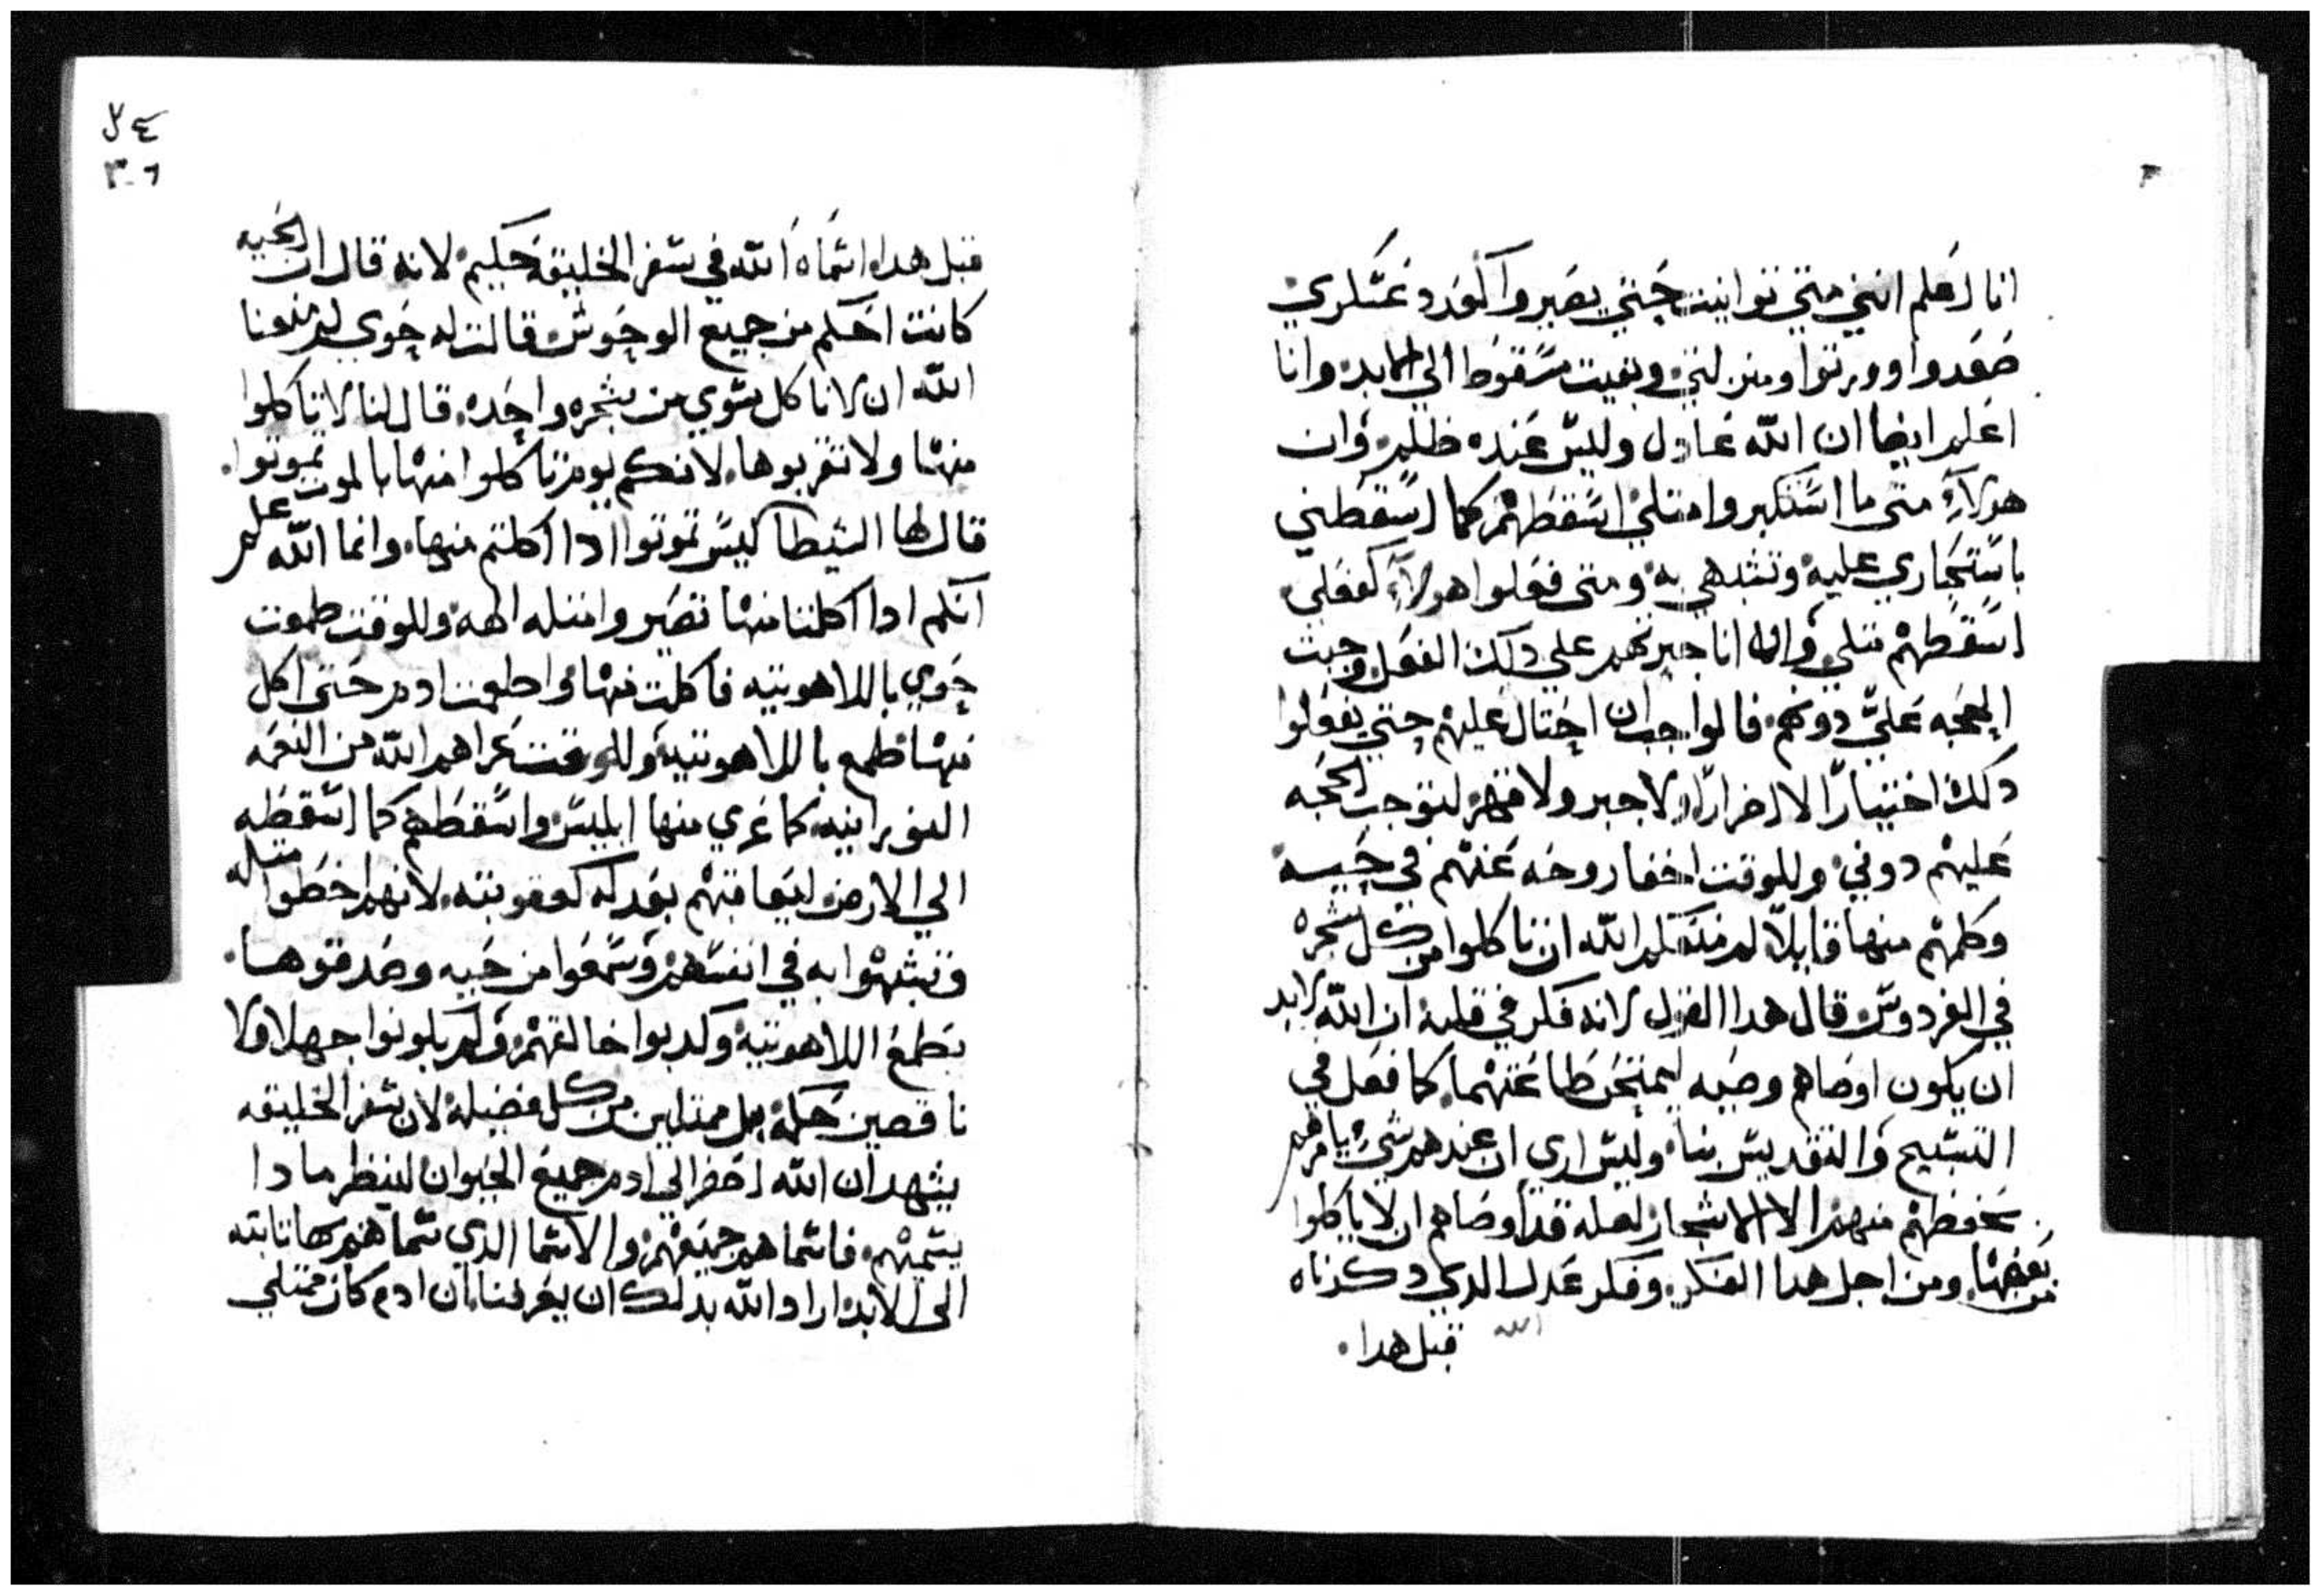 انا اعلم انني متي توانيت حتي يصيروا اكودد عسكري
صعدوا وورتوا ومنزلتي وبقيت مسقوط الي الابد وانا
اعلم ايضا ان الله عادل وليس عنده ظلم وان
هولاء متي ما استكبروا امتلي اسقطهم كما اسقطني
باستجاري عليه وتشبهي به ومتي فعلوا هولاء كفعلي
اسقطهم متلي وان انا جبرتهم علي دلك الفعل وجبت
الحجه علي دونهم فالواجب ان احتال عليهم حتي يفعلوا
دلك اختيارا لا اضرارا لا جبر ولا قهر لتوجب الحجه
عليهم دوني وللوقت اخفا روحه عنهم في حيه
وكلمهم منها قايلا لم منعكم الله ان تاكلوا من كل شجره
في الفردوس قال هدا القول لانه فكر في قلبه ان الله لابد
ان يكون اوصاهم وصيه ليمتحن طاعتهما كما فعل في
التسبيح والتقديس بنا وليس اري ان عندهم شي يامرهم
بحفظهم منهم الا الاشجار لعله قد اوصاهم ان لا ياكلوا
من بعضها ومن اجل هدا الفكر وفكر عدل الله الدي دكرناه
قبل هدا
٢٤
٣٠٦
قبل هدا اسماه الله في سفر الخليقه حكيم لانه قال ان الحيه
كانت احكم من جميع الوحوش قالت له حوي لم منعنا
الله ان لا ناكل سوي من شجره واحده قال لنا لا تاكلوا
منها ولا تقربوها لانكم يوم تاكلوا منها بالموت تموتوا
قال لها الشيطا ليس تموتوا ادا اكلتم منها وانما الله علم
انكم ادا اكلتما منها تصيروا متله الهه وللوقت طمعت
حوي باللاهوتيه فاكلت منها واطعمت ادم حتي اكل
منها طمع باللاهوتيه وللوقت عراهم الله من النعمه
النورانيه كما عري منها ابليس واسقطهم كما اسقطه
الي الارض ليعاقبهم بعدله كعقوبته لانهم اخطوا متله
وتشبهوا به في انفسهم وسمعوا من حيه وصدقوها
بطمع اللاهوتيه وكدبوا خالقهم ولم يكونوا جهلا ولا
ناقصين حكمه بل ممتلين من كل فضيله لان سفر الخليقه
يشهد ان الله احضر الي ادم جميع الحيوان لينظر مادا
يسميهم فاسماهم جميعهم والاسما الدي سماهم بها تابته
الي الابد اراد الله بدلك ان يعرفنا ان ادم كان ممتلي